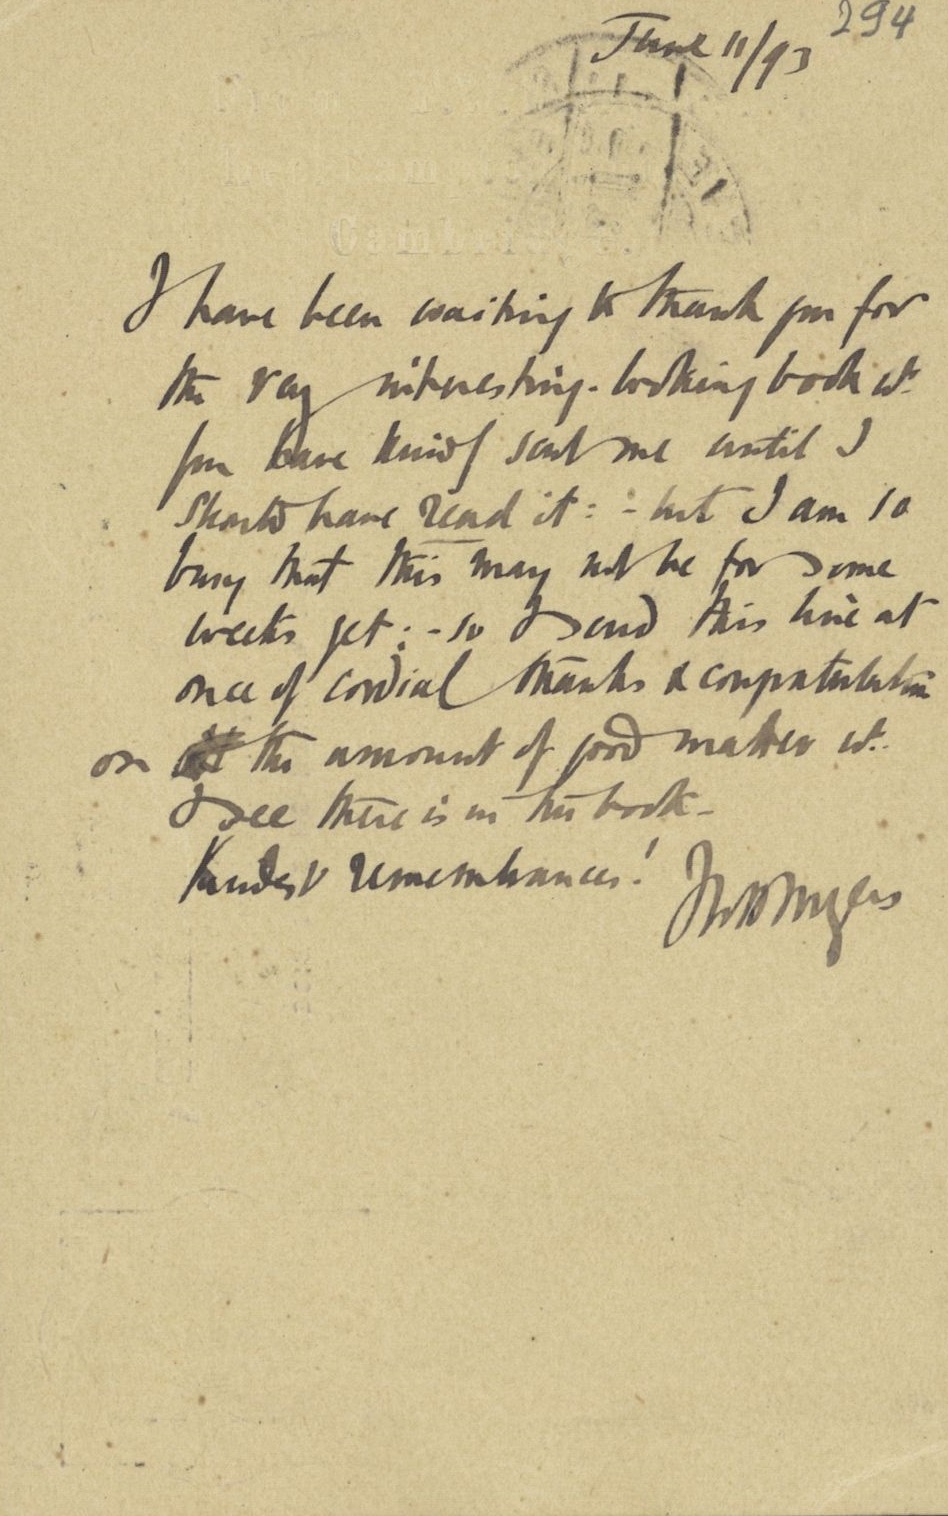 294
June 11/93
Cambridge.
I have been waiting to thank you for
the very interesting-looking book wh.
you have kindly sent me until I
should have read it: - but I am so
busy that this may not be for some
weeks yet; - so I send this line at
once of cordial thanks & congratulation
on the amount of good matter wh.
I see there is in the book -
Kindest remembrances!
FWH Myers